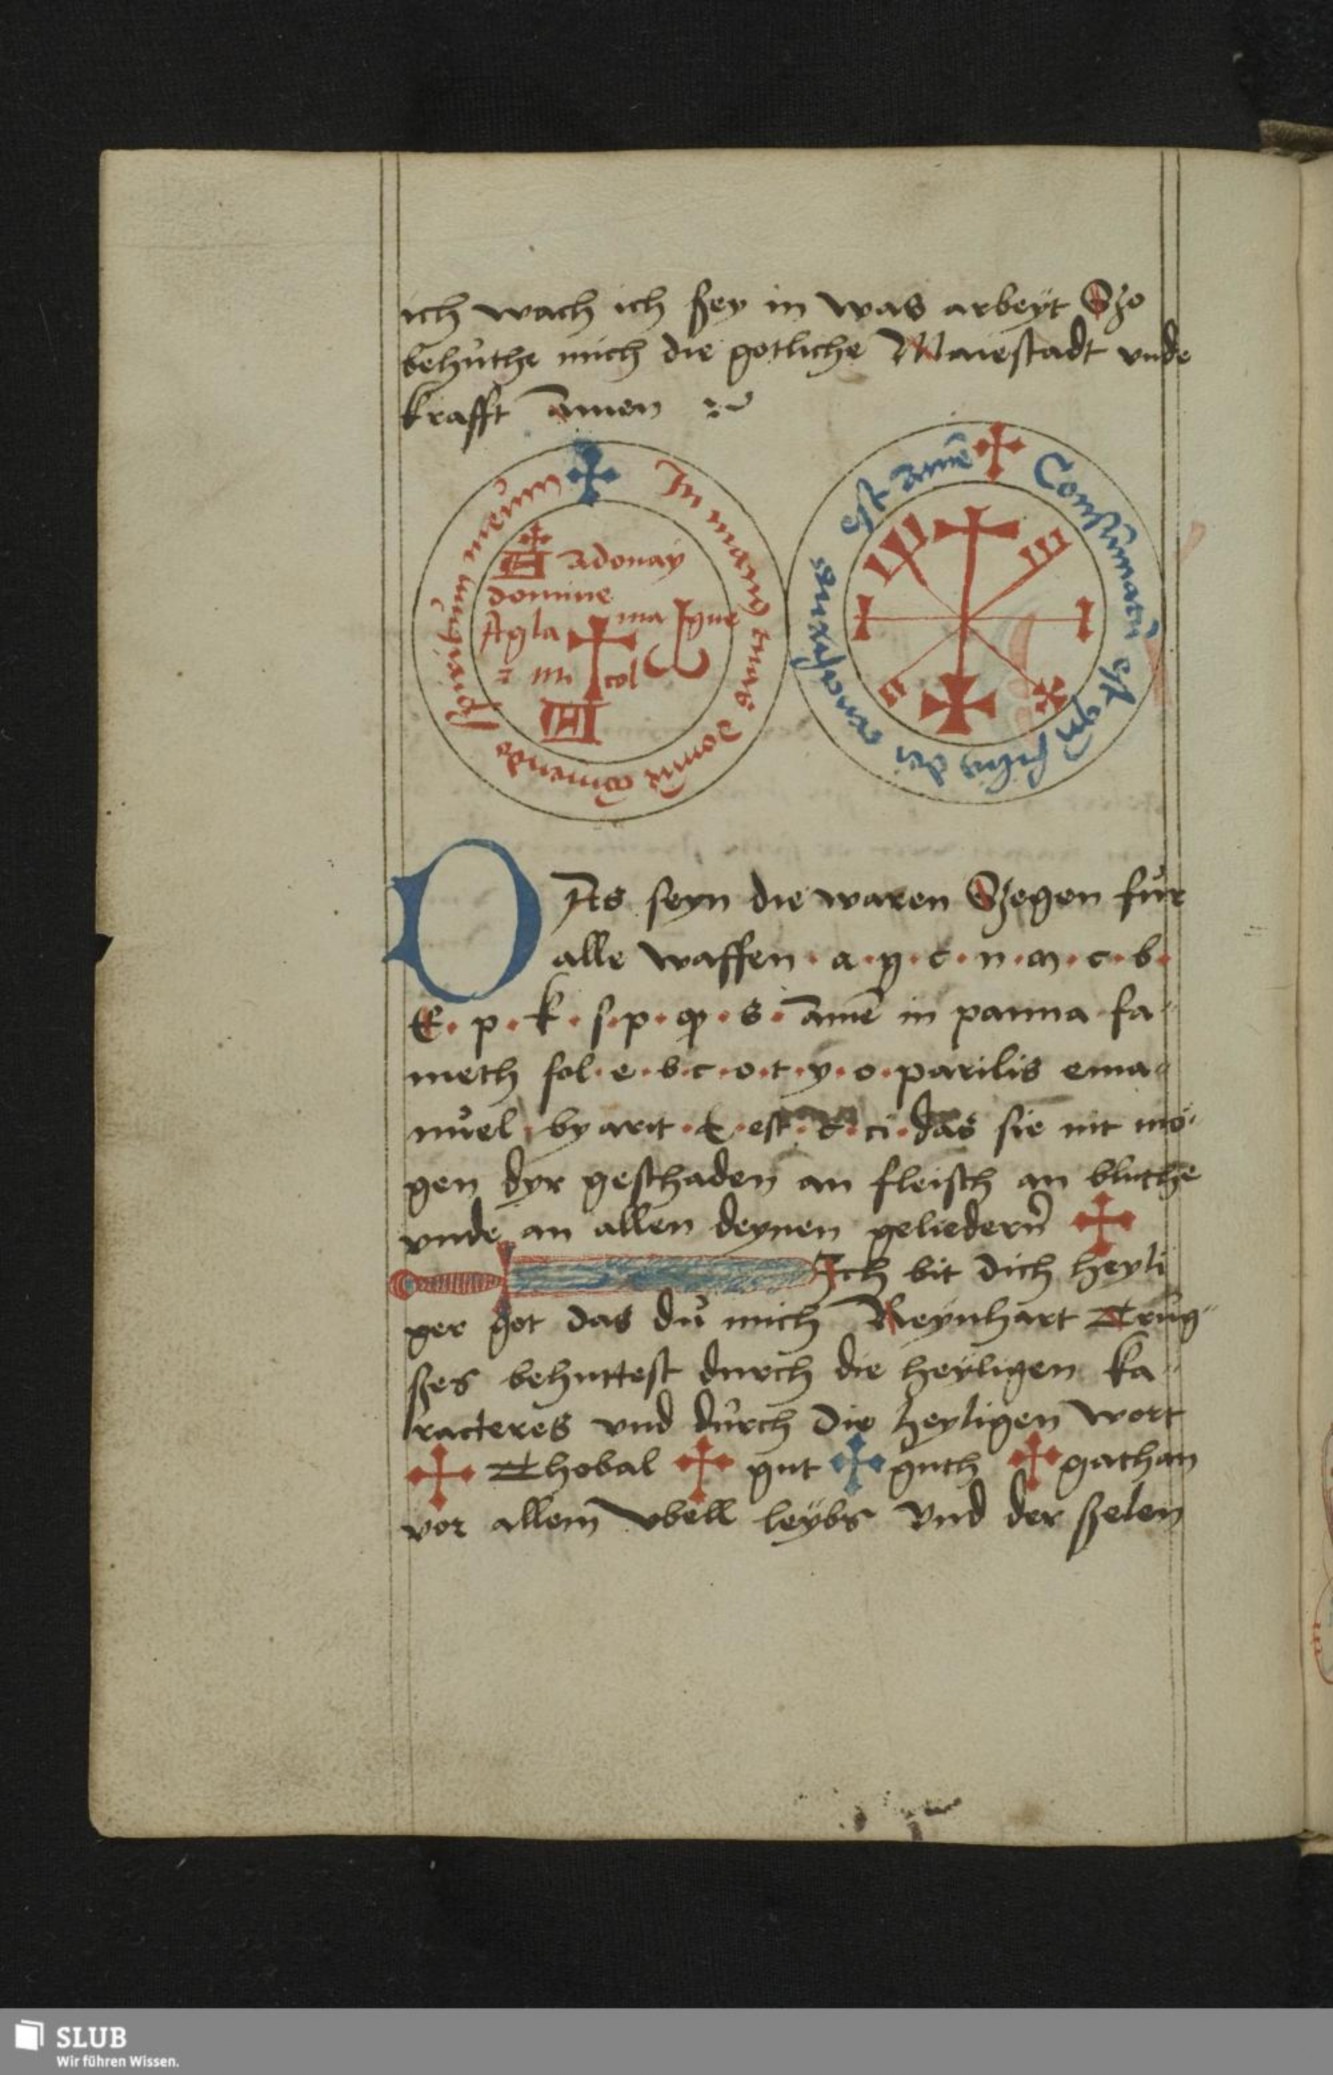 ich wach ich sey in was arbeyt Szo
behüthe mich die gotliche Maiestadt vnde
krafft amen
In manꝰ tuas domīe cōmendo spiritum meum
Adonay
domine
Agla
ma
gne
col
Consūmatū est
filiꝰ dei
est amē
DAs seyn die waren Szegen für
alle waffen · a · g · c · n · m · c · b ·
E · p · k · s · p · q · s · amē in panna fa-
meth sol · e · b · c · o · t · y · o · parilis ema-
nuel byarit · & · est · ci · das sie nit mö-
gen dyr geschaden an fleisch an bluthe
vnde an allen deynen geliedern̄
Ich bit dich heyli
ger got das du mich Reynhart Trug-
szes behuttest durch die heyligen ka-
racteres vnd durch die heyligen wort
✠ Thobal ✠ gut ✠ guth ✠ gathan
vor allem vbell leybs Vnd der szelen
SLUB
Wir führen Wissen.